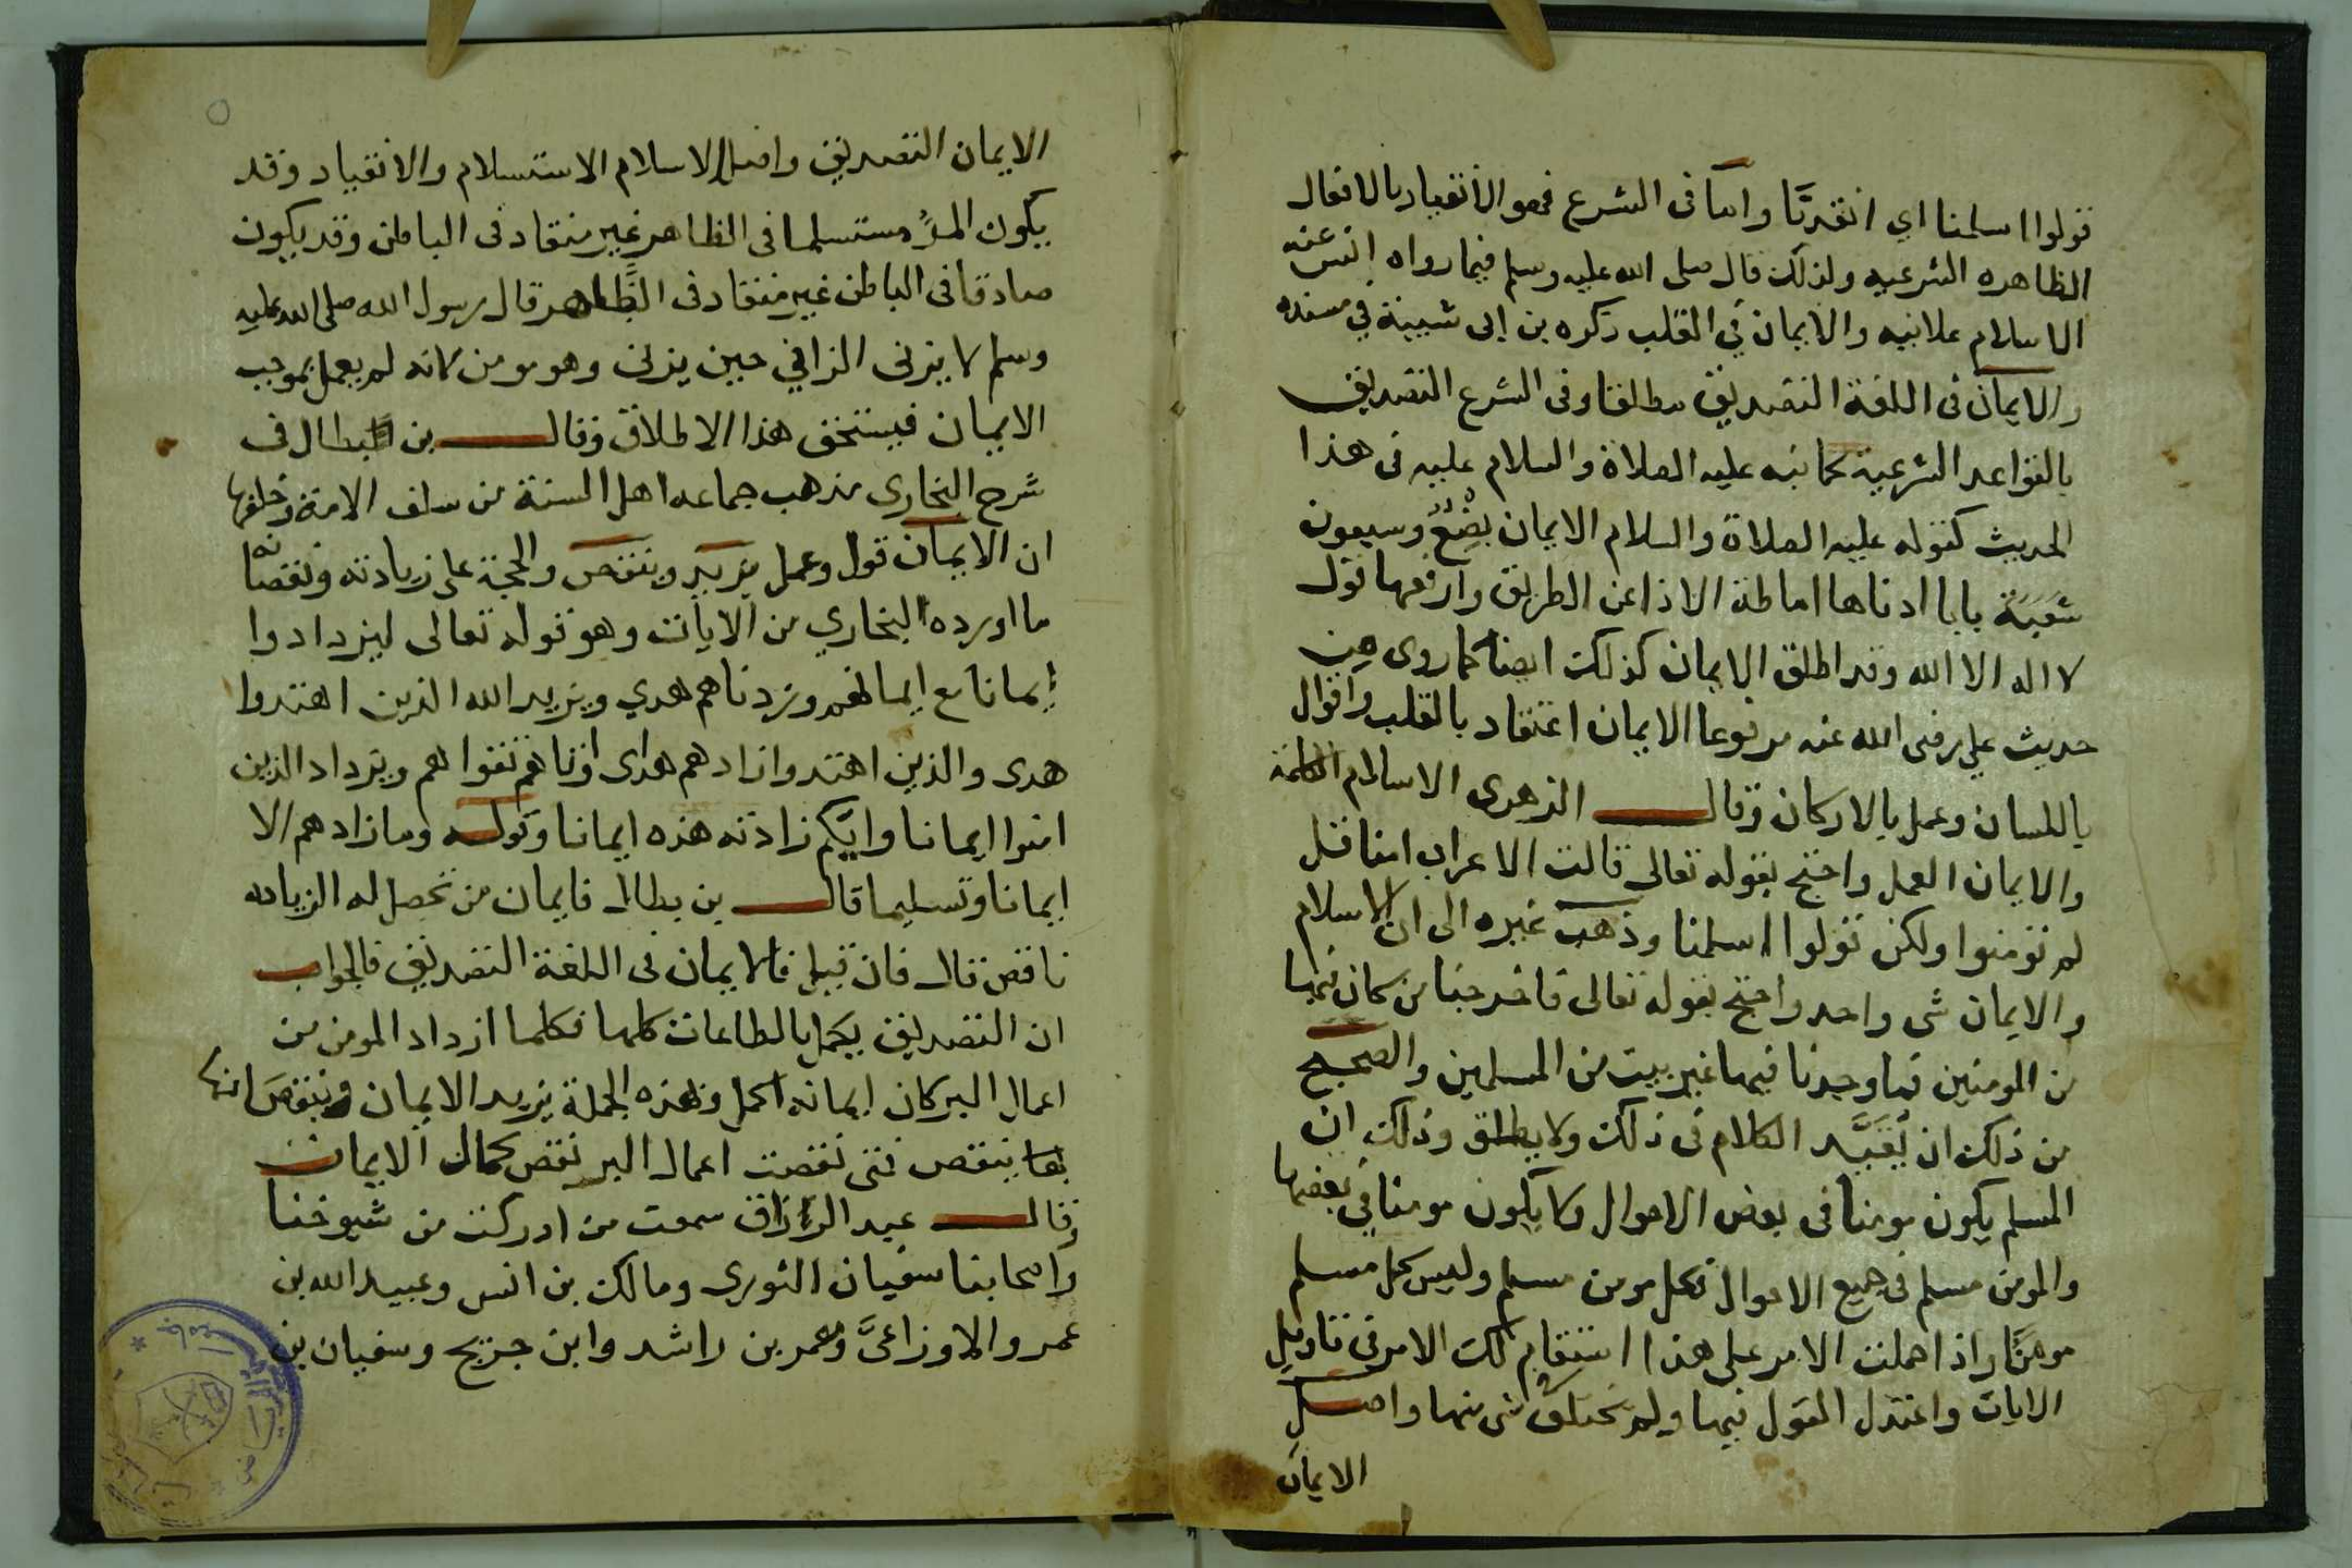 قولوا اسلمنا اي انقدنا واما في الشرع فهو الانقياد بالافعال
الظاهره الشرعيه ولذلك قال صلى الله عليه وسلم فيما رواه انس عنه
الاسلام علانيه والايمان في القلب ذكره بن ابى شيبة في مسنده
والايمان في اللغة التصديق مطلقا وفى الشرع التصديق
بالقواعد الشرعية كما نبه عليه الصلاة والسلام عليه فى هذا
الحديث كقوله عليه الصلاة والسلام الايمان بضع وسبعون
شعبة بابا ادناها اماطة الاذا عن الطريق وارفعها قول
لا اله الا الله وقد اطلق الايمان كذلك ايضا كما روى من
حديث علي رضى الله عنه مرفوعا الايمان اعتقاد بالقلب واقوال
باللسان وعمل بالاركان وقال الزهرى الاسلام الكلمة
والايمان العمل واحتج بقوله تعالى قالت الاعراب امنا قل
لم تؤمنوا ولكن قولوا اسلمنا وذهب غيره الى ان الاسلام
والايمان شى واحد واحتج بقوله تعالى فاخرجنا من كان فيها
من المومنين فما وجدنا فيها غير بيت من المسلمين والصحيح
من ذلك ان يقيد الكلام فى ذلك ولا يطلق وذلك ان
المسلم يكون مومنا فى بعض الاحوال ولا يكون مومنا في بعضها
والمومن مسلم فى جميع الاحوال فكل مومن مسلم وليس كل مسلم
مومنا واذا حملت الامر على هذا استقام لك الامر فى تاويل
الايات واعتدل القول فيها ولم يختلف شى منها واصل
الايمان
الايمان التصديق واصل الاسلام الاستسلام والانقياد وقد
يكون المرُ مستسلما فى الظاهر غير منقاد فى الباطن وقد يكون
صادقا فى الباطن غير منقاد فى الظاهر قال رسول الله صلى الله عليه
وسلم لا يزنى الزاني حين يزنى وهو مومن لانه لم يعمل بموجب
الايمان فيستحق هذا الاطلاق وقال بن بطال فى
شرح البخارى مذهب جماعه اهل السنة من سلف الامة وخلفها
ان الايمان قول وعمل يزيد وينقص والحجة على زيادته ونقصانه
ما اورده البخاري من الايات وهو قوله تعالى ليزدادوا
إيمانا مع ايمانهم وزدناهم هدي ويزيد الله الذين اهتدوا
هدى والذين اهتدوا زادهم هدى اوتاهم تقواهم ويزداد الذين
امنوا ايمانا وايكم زادته هذه ايمانا وقوله وما زادهم الا
ايمانا وتسليما قال بن بطال فايمان من تحصل له الزياده
ناقص قال فان قيل فالايمان فى اللغة التصديق فالجواب
ان التصديق يكمل بالطاعات كلها فكلما ازداد المومن من
اعمال البر كان ايمانه اكمل وبهذه الجملة يزيد الايمان وبنقصانها
ينقص فمتى نقصت اعمال البر نقص كمال الايمان
وقال عبد الرزاق سمعت من ادركت من شيوخنا
واصحابنا سفيان الثورى ومالك بن انس وعبيد الله بن
عمر والاوزاعىَّ ومعمر بن راشد وابن جريج وسفيان بن